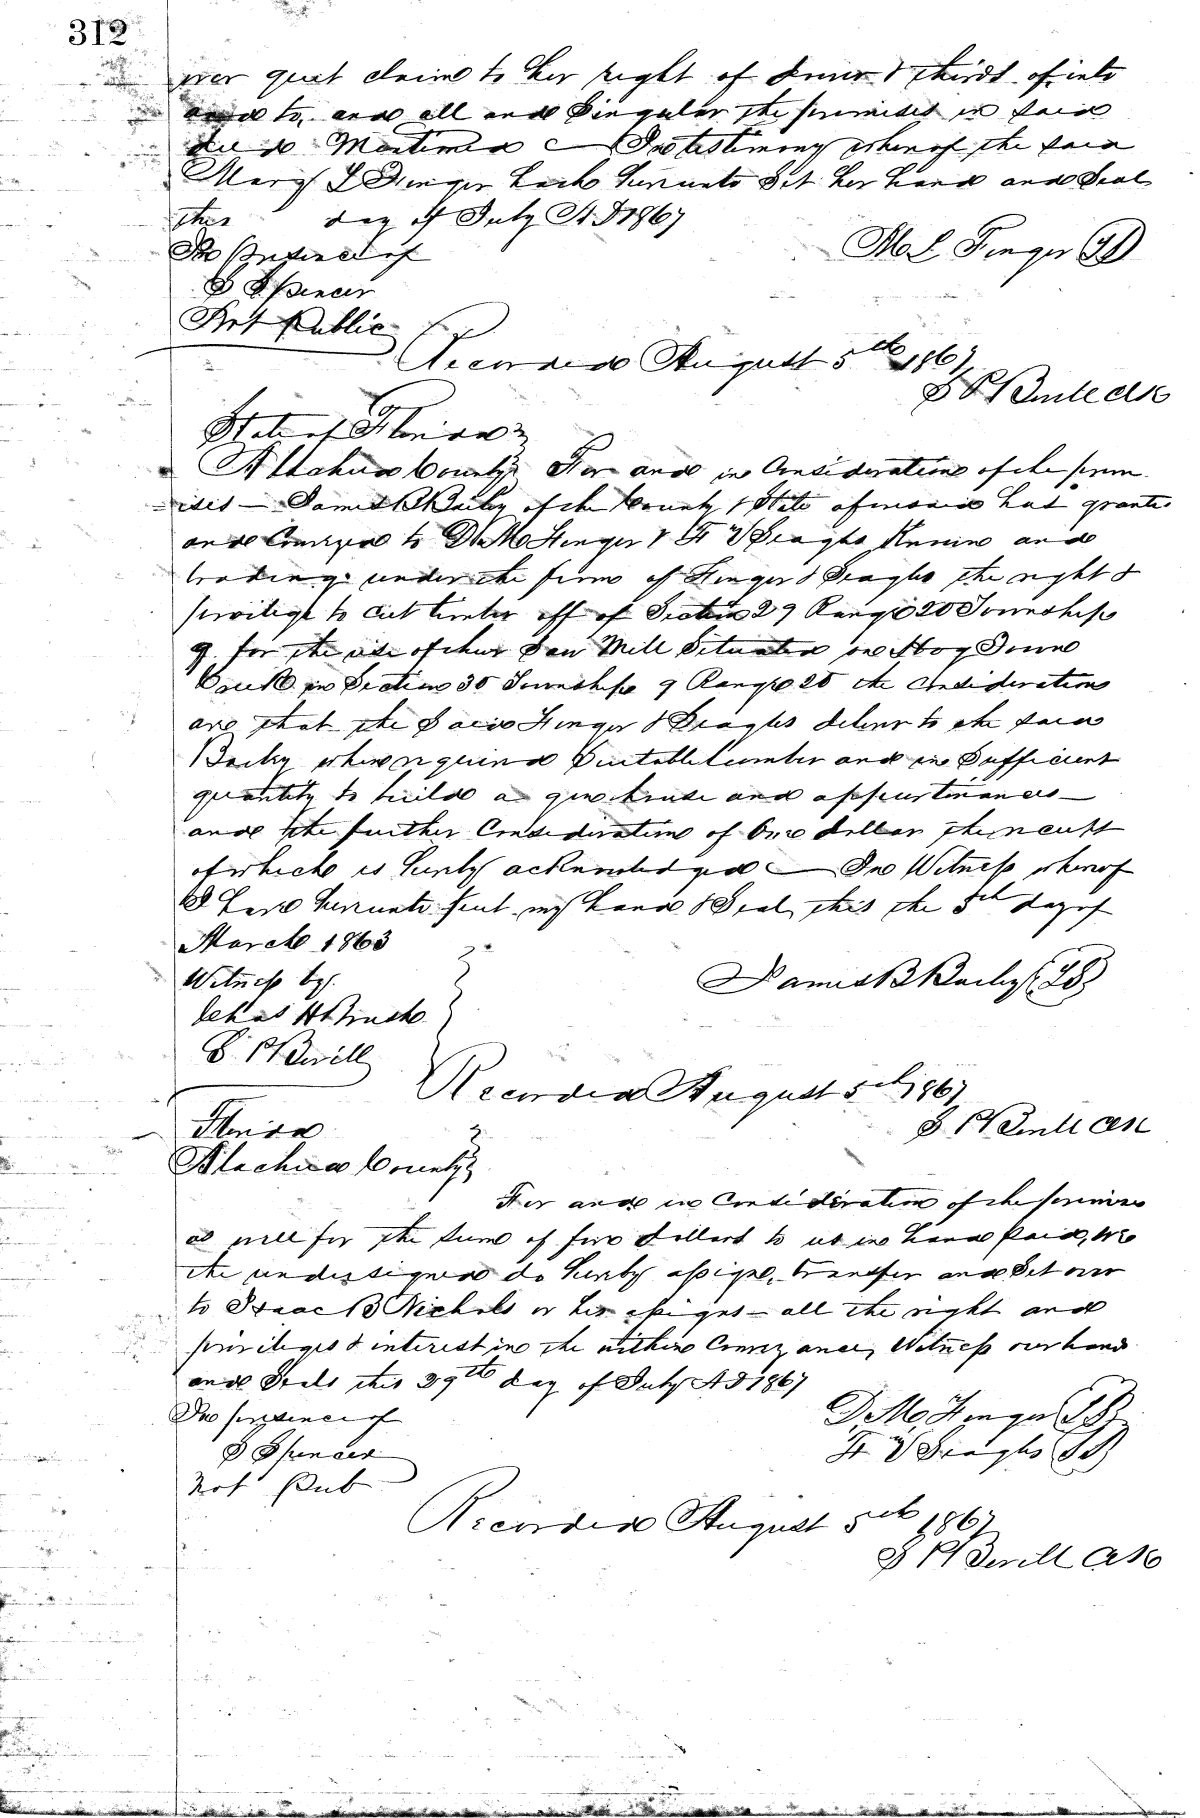 312
over quit claim to her right of dower & thirds of into
and to, and all and Singular the premises in said
deed Mentioned In testimony whereof the said
Mary L Finger hath hereunto Set her hand and Seal
this day of July A D 1867
In presence of M L Finger LS
S Spencer
Not Public
Recorded August 5th 1867
S P Bevill Clk
State of Florida
Alachua County For and in Consideration of the prem
ises — James B Bailey of the County & State aforesaid has granted
and Conveyed to D M Finger & F Y Seagle Known and
trading under the firm of Finger & Seagle the right &
privilege to cut timber off of Section 29 Range 20 Township
9. for the use of their Saw Mill Situated on Hog Town
Creek in Section 35 Township 9 Range 20 the Considerations
are that the Said Finger & Seagle deliver to the said
Bailey when required Suitable lumber and in Sufficient
quantity to build a gin house and appurtinances —
and the further Consideration of One dollar the receipt
of which is hereby acknowledged — In Witness whereof
I have hereunto Sent my hand & Seal, this the 5th day of
March 1863
Witness by. James B Bailey LS
Chas H
S. P Bevill
Recorded August 5th 1867
S. P Bevill Clk
Florida
Alachua County
For and in Consideration of the premises
as well for the Sum of five dollars to us in hand paid, we
the undersigned do hereby assign, transfer and Set over
to Isaac B Nichols or his assigns — all the right and
privileges & interest in the within Conveyance, Witness our hand
and Seals this 29th day of July A D 1867
In presence of D. M. Finger LS
S Spencer F Y Seagle LS
Not Pub
Recorded August 5th 1867
S P Bevill Clk